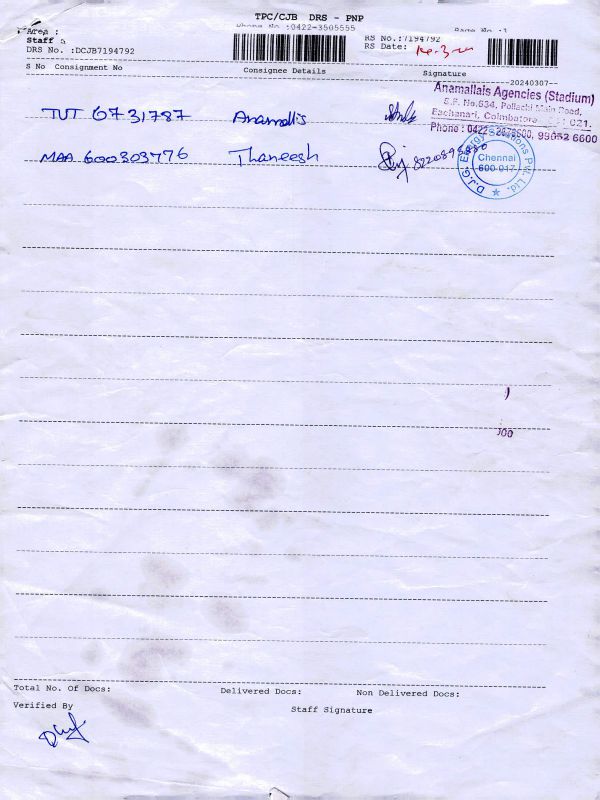 TPC/CJB DRS - PNP
Phone No :0422-3505555
Area :
Staff :
RS No.:7194792
Page No :1
DRS No. :DCJB7194792
RS Date:
20240307
S No Consignment No Consignee Details Signature
Anamallais Agencies (Stadium)
S.F. No.634, Pollachi Main Road,
Eachanari, Coimbatore
021.
Phone : 0422
99052 6600
TUT 6731787 Anamallis
MAA 600303776 Thaneesh
D.J.G. Energy Solutions Pvt. Ltd.
Chennai
600 017
)
100
Total No. Of Docs: Delivered Docs: Non Delivered Docs:
Verified By
Staff Signature